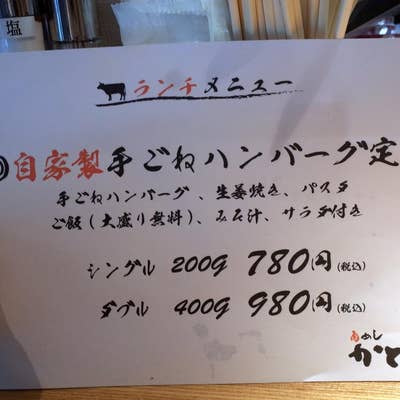 塩
ランチメニュー
自家製手ごねハンバーグ定
手ごねハンバーグ、生姜焼き、パスタ
ご飯(大盛り無料)、みそ汁、サラダ付き
シングル 200G 780円(税込)
ダブル 400G 980円(税込)
めし
かと